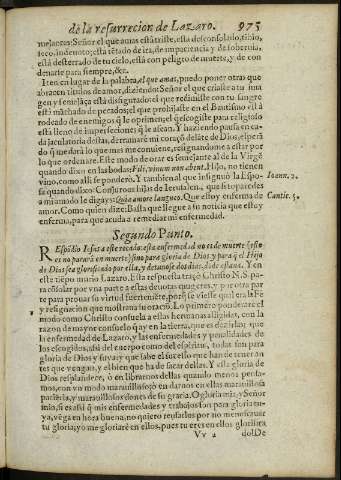 de la resurrecion de Lazaro. 973
mejantes: Señor el que amas está triste, está desconsolado, tibio,
seco, indeuoto; està tẽtado de ira, de impaciencia y de soberuia,
està desterrado de tu cielo, està con peligro de muerte, y de con
denarse para siempre, &c.
Iten en lugar de la palabra, el que amas, puedo poner otras que
abracen titulos de amor, diziendo: Señor el que criaste a tu ima
gen y semejãça està disfigurado: el que redimiste con tu sangre
està mãchado de pecados: el que prohijaste en el Bautismo està
rodeado de enemigos q̃ le oprimen; el q̃ escogiste para religioso
està lleno de imperfeciones q̃ le afean. Y haziendo pausa en ca-
da jaculatoria destas, derramarè mi coraçõ delãte de Dios, esperã
do q̃ medarà lo que mas me conuiene, resignandome a estar por
lo que ordenare. Este modo de orar es semejante al de la Virgẽ
quando dixo en las bodas: Fili, vinum non habent, Hijo, no tienen
vino, como alli se ponderò. Y tambien al que insinuò la Espo- Ioann. 2.
sa quando dixo: Conjuroos hijas de Ierusalen, que si topardes
a mi amado le digays: Quia amore langueo. Que estoy enferma de Cantic. 5.
amor. Como quien dize: Basta que llegue a su noticia que estoy
enferma, para que acuda a remediar mi enfermedad.
Segundo Punto.
REspõdio Iesus a este recado: esta enfermedad no es de muerte (esto
es no pararà en muerte) sino para gloria de Dios y para q̃ el Hijo
de Dios sea glorificado por ella, y detuuose dos dias, dõde estaua. Y en
este tiẽpo murio Lazaro. Esta respuesta traçò Christo N. S. pa-
ra cõsolar por vna parte a estas deuotas mugeres, y por otra par
te para prouar su virtud fuertemẽte, porq̃ se viesse qual era la Fe
y resignacion que mostraua su oraciõ. Lo primero ponderarè el
modo como Christo consuela a estas hermanas afligidas, con la
razon de mayor consuelo q̃ ay en la tierra, que es dezirlas: que
la enfermedad de Lazaro, y las enfermedades y penalidades de
los escogidos, assi del cuerpo como del espiritu, todas son para
gloria de Dios y suya: y que sabe el sucesso que han de tener an
tes que vengan, y el bien que ha de sacar dellas. Y esta gloria de
Dios resplandece, ò en librarnos dellas quando menos pensa-
mos, con vn modo marauilloso, ò en darnos en ellas marauillosa
paciẽcia, y marauillosos dones de su gracia. O gloria mia, y Señor
mio, si es assi q̃ mis enfermedades y trabajos son para gloria tu-
ya, vẽga en hora buena, no quiero rusarlos por no menoscauar
tu gloria, yo me gloriarè en ellos, pues tu eres en ellos glorifica
Vv 2 do. I De